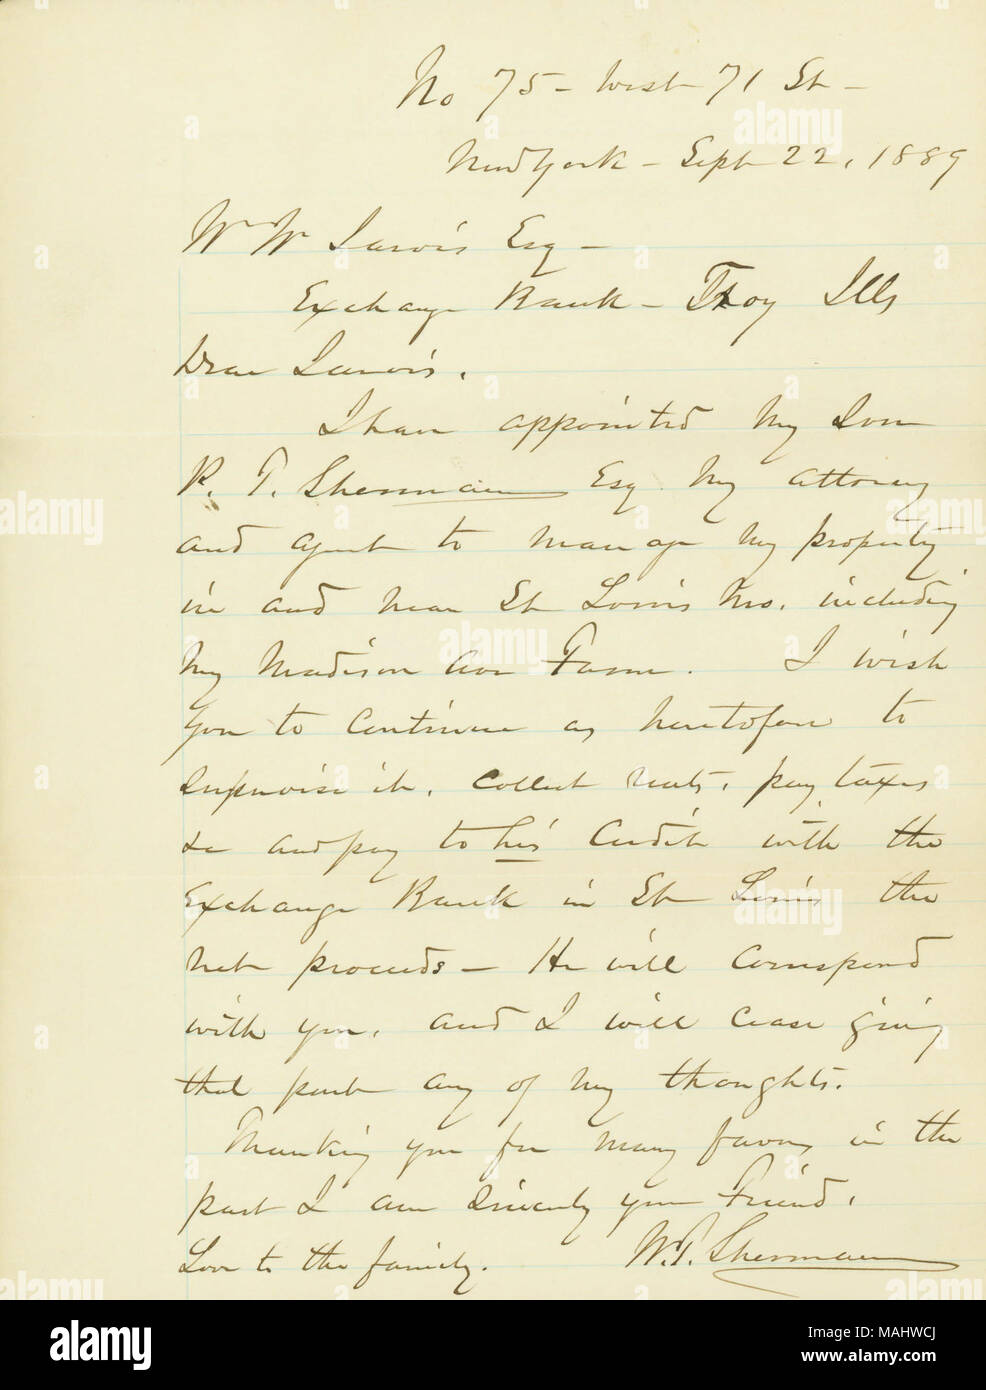 No 75 - West 71 St -
New York - Sept 22, 1889
W W Jarvis Esq -
Exchange Bank - Troy Ills
Dear Jarvis.
I have appointed my Son
P. T. Sherman Esq my attorney
and agent to manage my property
in and near St Louis Mo. including
my Madison Farm. I wish
you to continue as heretofore to
supervise it, collect rents, pay taxes
&c and pay to his Credit with the
Exchange Bank in St Louis the
net proceeds - He will correspond
with you, and I will cease giving
that part any of my thoughts.
Thanking you for many favors in the
past I am Sincerely your Friend,
Love to the family. W. T. Sherman
alamy
Image ID: MAHWCJ
www.alamy.com